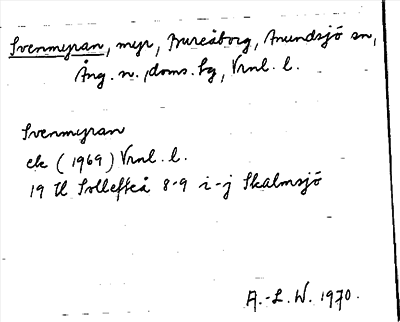 Svenmyran, myr, Bureåborg, Anundsjö sn,
Ång. n. doms. sg, Vrnl. l.
Svenmyran
ek (1969) Vrnl. l.
19 H Sollefteå 8-9 i-j Skalmsjö
A.-L. W. 1970.